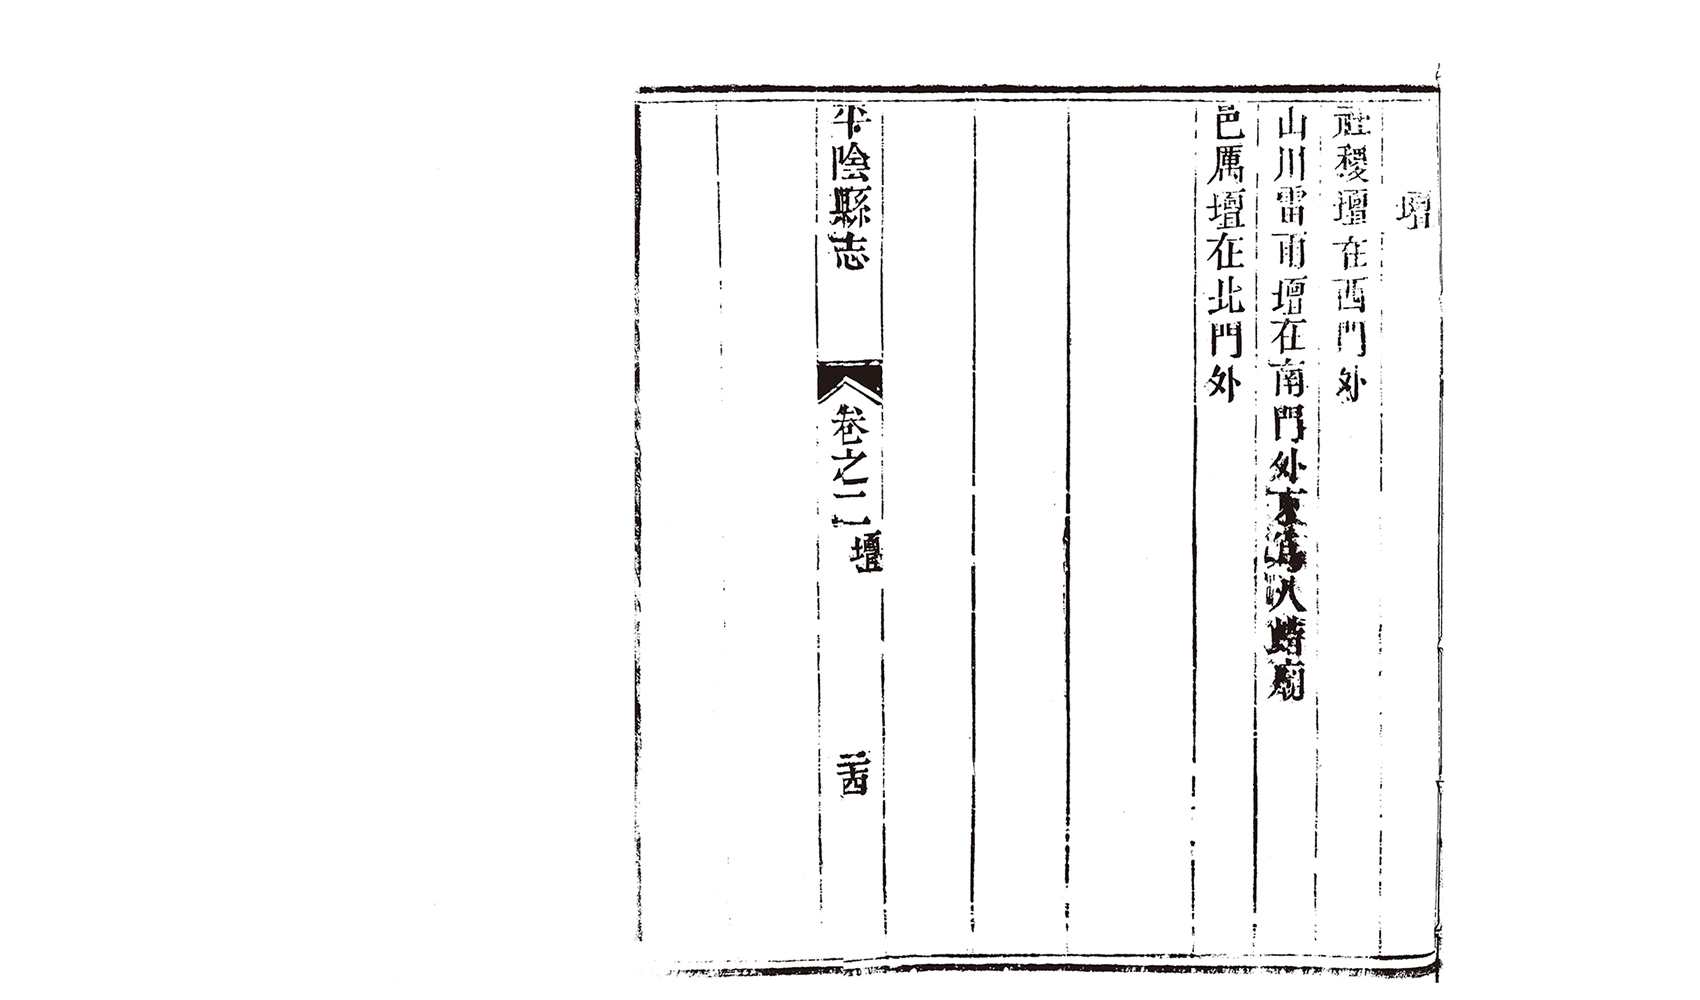 壇
社稷壇在西門外
山川雷雨壇在南門外東爲八蜡廟
邑厲壇在北門外
平陰縣志
卷之二
壇
二西